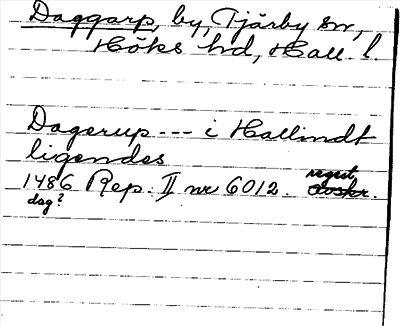 Daggarp, by, Tjärby sn,
Höks hd, Hall. l.
Dagerup --- i Hallindt
ligendes
1486 Rep. II nr 6012. regest.
dag?